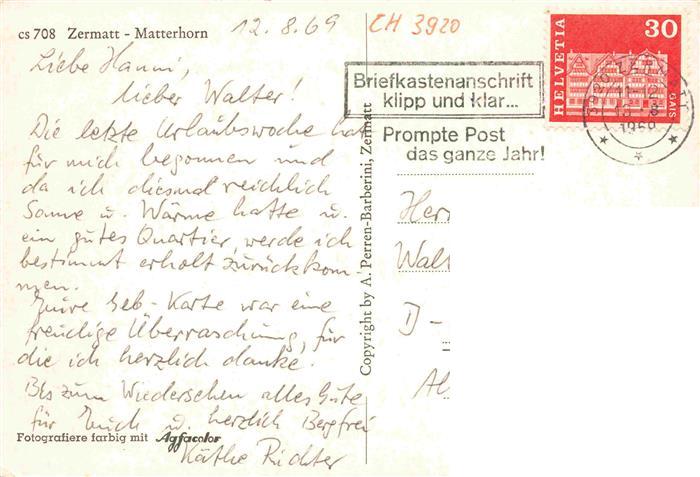 cs 708 Zermatt - Matterhorn
12.8.69
CH 3920
Liebe Hanni,
lieber Walter!
Die letzte Urlaubswoche hat
für mich begonnen und
da ich diesmal reichlich
Sonne u. Wärme hatte u.
ein gutes Quartier, werde ich
bestimmt erholt zurückkom
men.
Eure Geb-Karte war eine
freudige Überraschung, für
die ich herzlich danke.
Bis zum Wiedersehen alles Gute
für Euch u. herzlich Bergfrei
Käthe Richter
Fotografiere farbig mit Agfacolor
Copyright by A. Perren-Barberini, Zermatt
Briefkastenanschrift
klipp und klar...
Prompte Post
das ganze Jahr!
HELVETIA
30
GAIS
3920 ZERMATT
Herr
Walt
D -